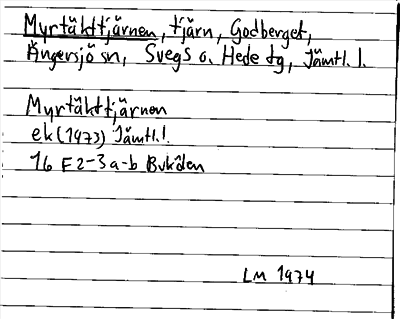 Myrtäkttjärnen, tjärn, Godberget,
Ängersjö sn, Svegs o. Hede tg, Jämtl. l.
Myrtäkttjärnen
ek (1973) Jämtl. l.
16 F 2-3 a-b Buköln
LM 1974